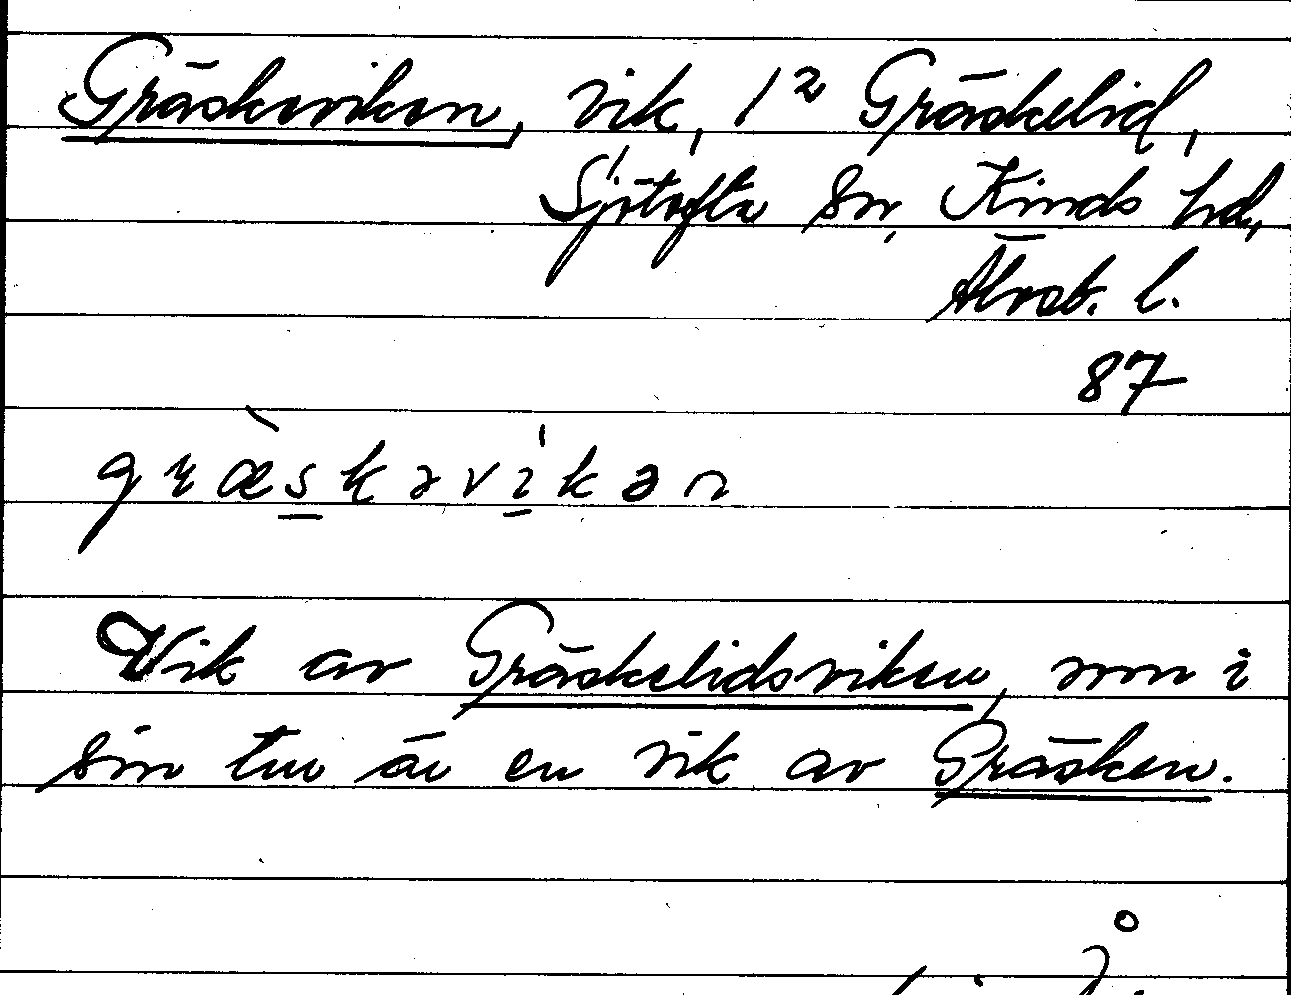 Gräskeviken, vik, 1² Gräskelid,
Sjötofta sn, Kinds hd,
Älvsb. l.
87
græskəvikən
Vik av Gräskelidsviken, som i
sin tur är en vik av Gräsken.